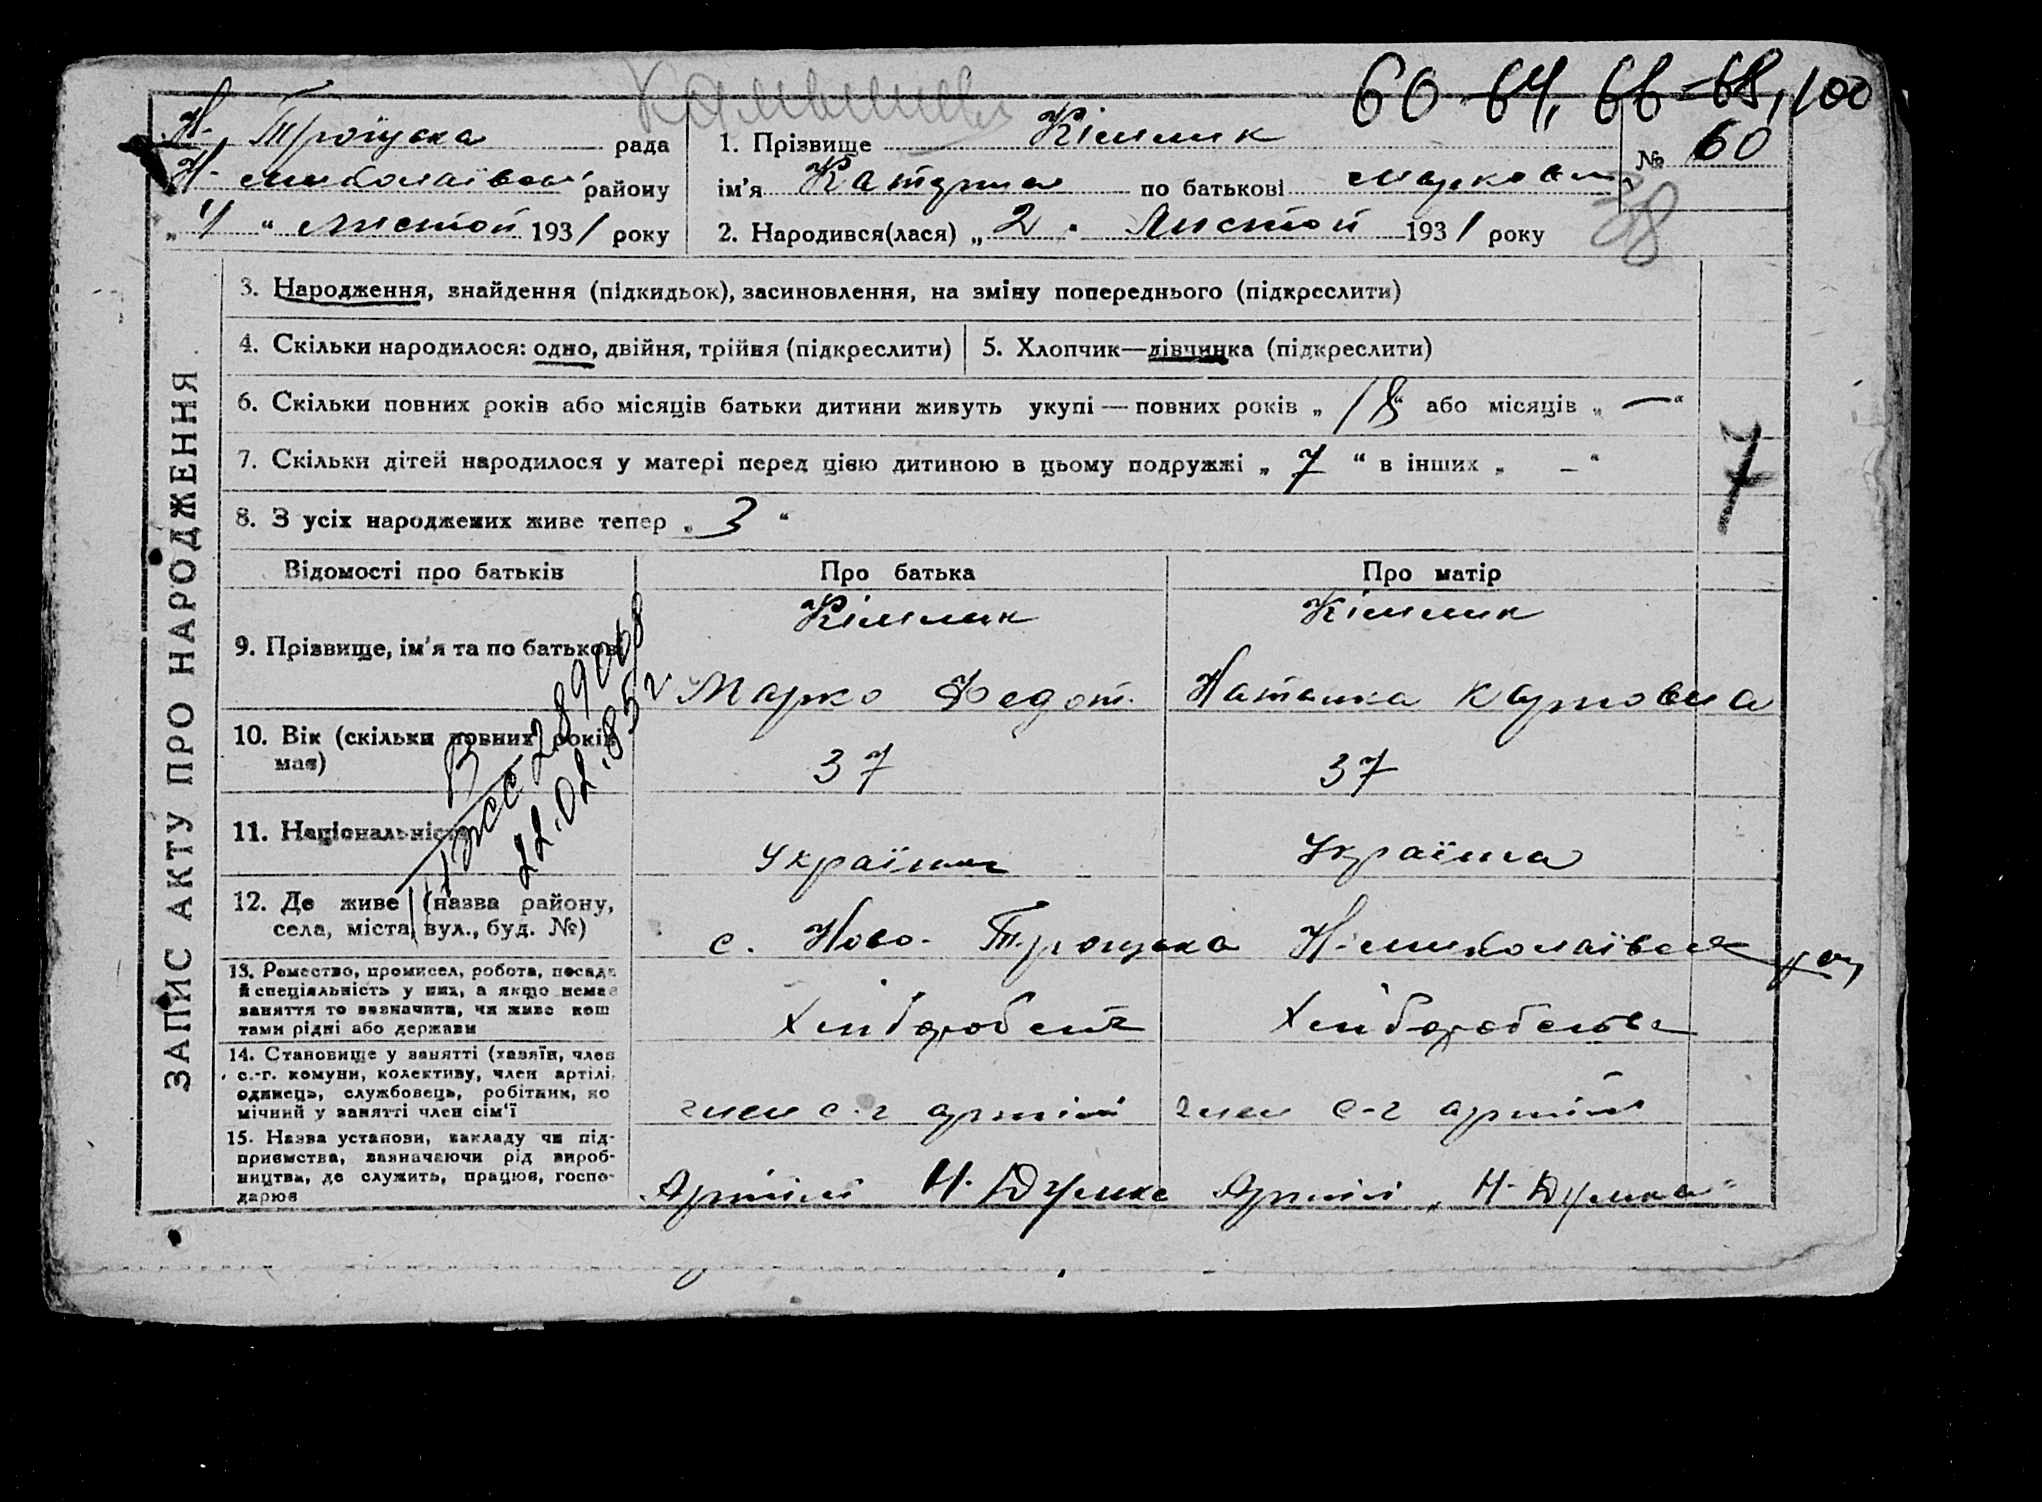 60-64, 66-68, 100
Н. Троїцка рада
Н-миколаївськ району
„ 4 “ Листоп 1931 року
1. Прізвище Кімлик
ім'я Катерина по батькові Марковна
№ 60
38
2. Народився(лася) „ 2 “ Листоп 1931 року
ЗАПИС АКТУ ПРО НАРОДЖЕННЯ
3. Народження, знайдення (підкидьок), засиновлення, на зміну попереднього (підкреслити)
4. Скільки народилося: одно, двійня, трійня (підкреслити)
5. Хлопчик—дівчинка (підкреслити)
6. Скільки повних років або місяців батьки дитини живуть укупі — повних років „ 18 “ або місяців „ — “
7. Скільки дітей народилося у матері перед цією дитиною в цьому подружжі „ 7 “ в інших „ — “
7
8. З усіх народжених живе тепер „ 3 “
Відомості про батьків
Про батька
Про матір
9. Прізвище, ім'я та по батькові
Кімлик
Марко Федот.
Кімлик
Наталка Карповна
10. Вік (скільки повних років має)
37
37
11. Національність
Українец
Українка
12. Де живе (назва району,
села, міста, вул., буд. №)
с. Ново-Троицка Н-миколаївськ рай
13. Ремество, промисел, робота, посада
й спеціяльність у них, а якщо немає
заняття то зазначити, чи живе кош
тами рідні або держави
Хліборобств
Хліборобство
14. Становище у занятті (хазяїн, член
с.-г. комуни, колективу, член артілі,
одинець, службовець, робітник, по
мічний у занятті член сім'ї
член с-г артілі
член с-г артілі
15. Назва установи, закладу чи під-
приємства, зазначаючи рід вироб-
ництва, де служить, працює, госпо-
дарює
Артілі Н-Думка
Артілі „Н-Думка“
289068
22.02.85 г